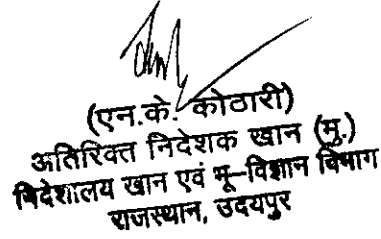 (एन.के. कोठारी)
अतिरिक्त निदेशक खान (मु.)
निदेशालय खान एवं भू–विज्ञान विभाग
राजस्थान, उदयपुर